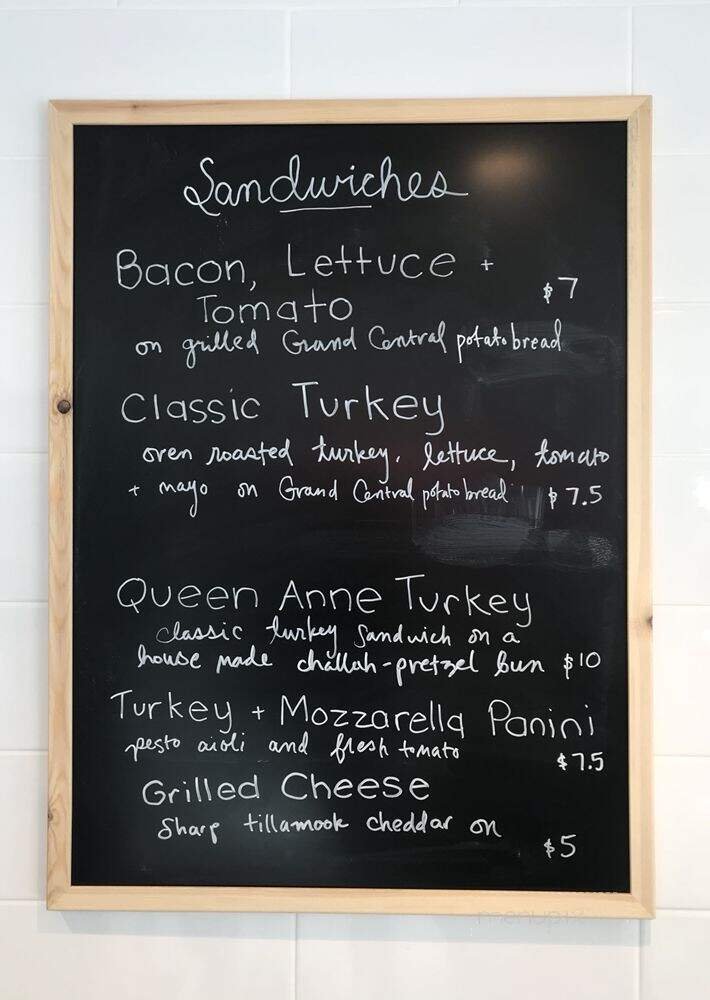 Sandwiches
Bacon, Lettuce +
Tomato
$7
on grilled Grand Central potato bread
Classic Turkey
oven roasted turkey, lettuce, tomato
+ mayo on Grand Central potato bread $7.5
Queen Anne Turkey
classic turkey sandwich on a
house made challah-pretzel bun $10
Turkey + Mozzarella Panini
pesto aioli and fresh tomato
$7.5
Grilled Cheese
sharp tillamook cheddar on
$5